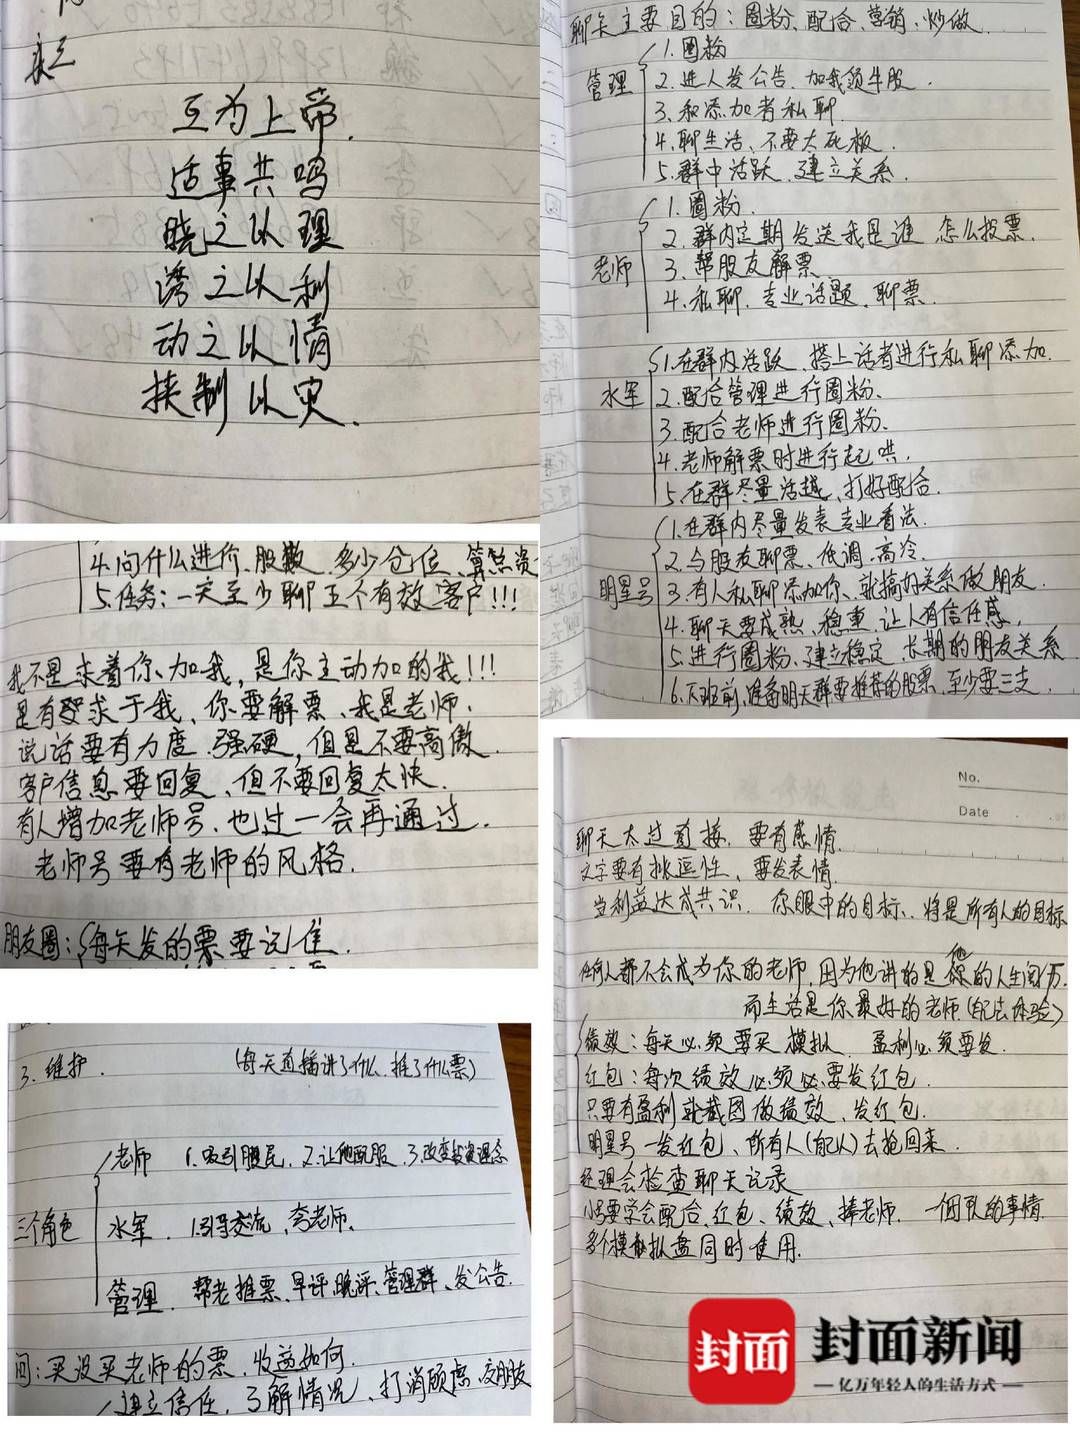 互为上帝.
适事共鸣
晓之以理
诱之以利
动之以情
挟制以灾.
聊天主要目的:圈粉、配合、营销、炒做.
管理
1.圈粉
2.进人发公告、加我领牛股.
3.和添加者私聊.
4.聊生活、不要太死板.
5.群中活跃、建立关系.
老师
1.圈粉.
2.群内定期发送我是谁 怎么投票.
3.帮股友解票
4.私聊、专业话题、聊票.
水军
1.在群内活跃、搭上话者进行私聊添加.
2.配合管理进行圈粉.
3.配合老师进行圈粉.
4.老师解票时进行起哄.
5.在群尽量活越、打好配合.
明星号
1.在群内尽量发表专业看法.
2.与股友聊票、低调、高冷.
3.有人私聊添加你、就搞好关系做朋友.
4.聊天要成熟、稳重 让人有信任感,
5.进行圈粉、建立稳定、长期的朋友关系
6.下班前,准备明天群要推荐的股票,至少要三支.
4.问什么进价、股数、多少仓位、算
5.任务:一天至少聊五个有效客户!!!
我不是求着你、加我,是你主动加的我!!!
是有求于我、你要解票、我是老师.
说话要有力度、强硬,但是不要高傲.
客户信息要回复、但不要回复太快.
有人增加老师号、也过一会再通过.
老师号要有老师的风格.
朋友圈:每天发的票要记住.
3.维护. (每天直播讲了什么、推了什么票)
三个角色
老师 1.吸引股民、2.让他配服、3.改变投资理念
水军. 1.引导交流、夸老师.
管理. 帮老推票、早评、晚评、管理群、发公告.
问:买没买老师的票、收益如何.
建立信任、了解情况、打消顾虑、交朋友
No.
Date
聊天太过直接、要有感情.
文字要有挑逗性、要发表情.
当利益达成共识. 你眼中的目标、将是所有人的目标
任何人都不会成为你的老师,因为他讲的是他的人生阅历.
而生活是你最好的老师.(自己去体验)
绩效:每天必须要买模拟、盈利必须要发.
红包:每次绩效必须必要发红包.
只要有盈利就截图做绩效、发红包.
明星号一发红包、所有人(自己人)去抢回来.
经理会检查聊天记录
小号要学会配合、红包、绩效、捧老师. 一个团队的事情.
多个模拟盘同时使用.
封面
封面新闻
亿万年轻人的生活方式